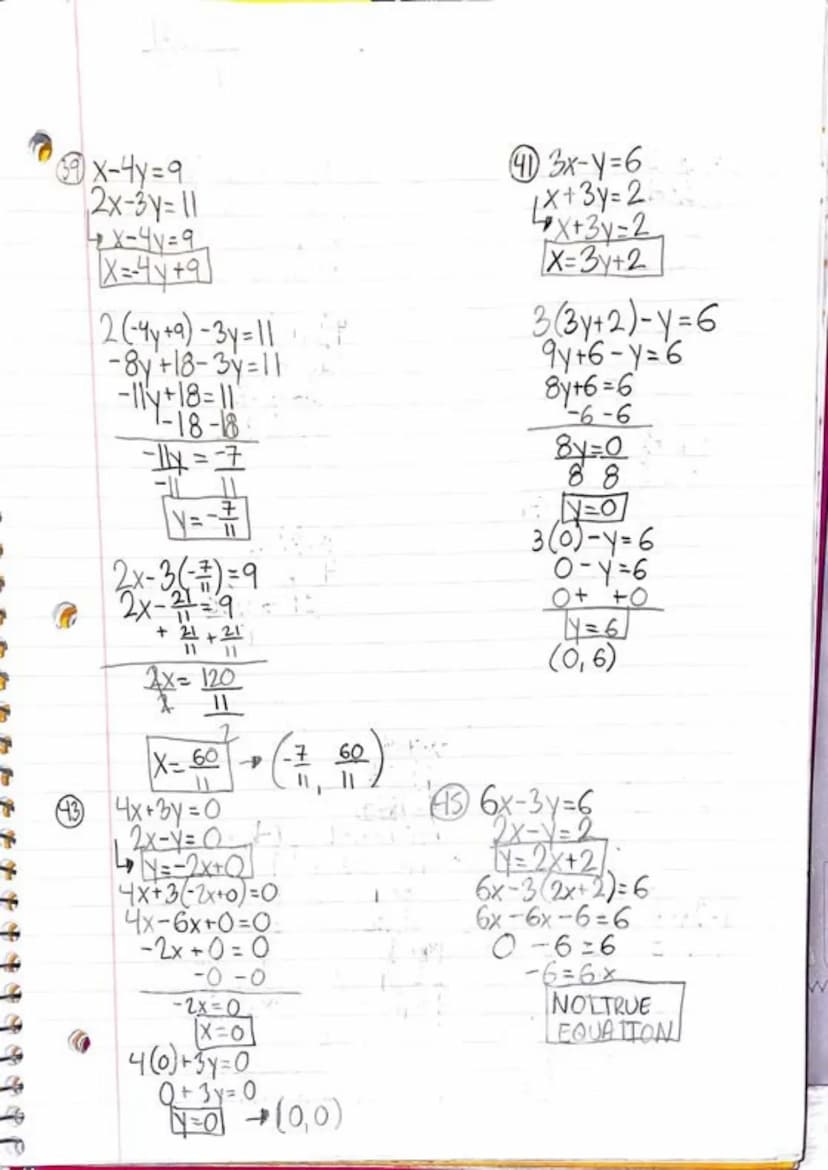 39 x-4y=9
2x-3y=11
↳ x-4y=9
x=-4y+9
2(-4y+9)-3y=11
-8y+18-3y=11
-11y+18=11
-18 -18
-11y = -7
-11 11
y=-7/11
2x-3(-7/11)=9
2x-21/11=9
+21/11 +21/11
2x = 120
2 11
x=60/11 → (-7/11, 60/11)
41 3x-y=6
x+3y=2
↳ x+3y=2
x=3y+2
3(3y+2)-y=6
9y+6-y=6
8y+6=6
-6 -6
8y=0
8 8
y=0
3(0)-y=6
0-y=6
0+ +0
y=6
(0,6)
43 4x+3y=0
2x-y=0
↳ y=-2x+0
4x+3(-2x+0)=0
4x-6x+0=0
-2x+0=0
-0 -0
-2x=0
x=0
4(0)+3y=0
0+3y=0
y=0 → (0,0)
45 6x-3y=6
2x-y=2
y=2x+2
6x-3(2x+2)=6
6x-6x-6=6
0 -6=6
-6=6 x
NOT TRUE
EQUATION